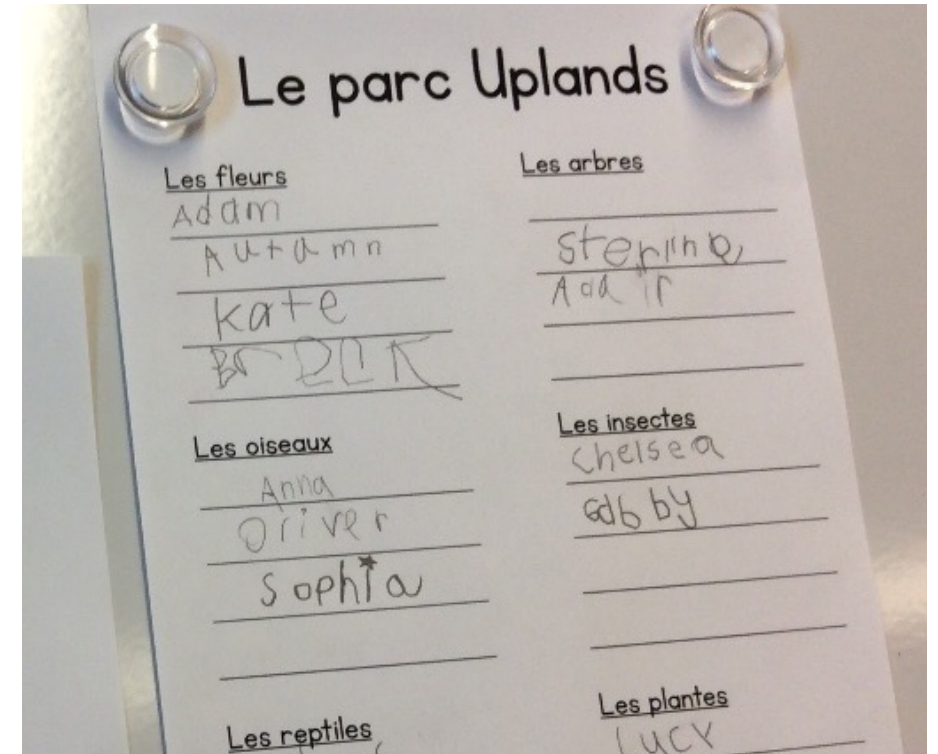 Le parc Uplands
Les fleurs
Adam
Autamn
Kate
BrECK
Les oiseaux
Anna
Oliver
Sophia
Les reptiles
Les arbres
Sterling
Adair
Les insectes
Chelsea
Gabby
Les plantes
Lucy